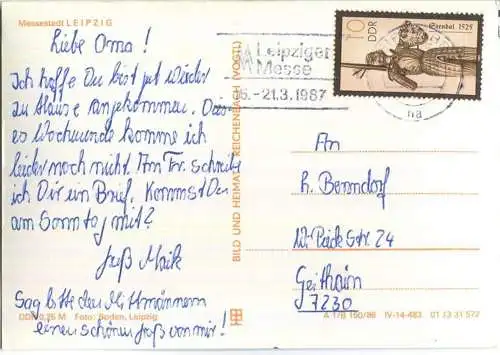 Messestadt LEIPZIG
Liebe Oma!
Ich hoffe Du bist gut wieder
zu Hause angekommen. Dies
es Wochenende komme ich
leider noch nicht. Am Fr. schreibe
ich Dir ein Brief. Kommst Du
am Sonntag mit?
Gruß Maik
Sag bitte den Mittmännern
einen schönen Gruß von mir!
DDR 0,25 M Foto: Boden, Leipzig
BILD UND HEIMAT REICHENBACH (VOGTL)
Leipziger
Messe
15.-21.3.1987
10 DDR
Stendal 1525
An
h. Benndorf
W.-Pieck Str. 24
Geithain
7230
A 1/B 150/86 IV-14-483 01 13 31 577